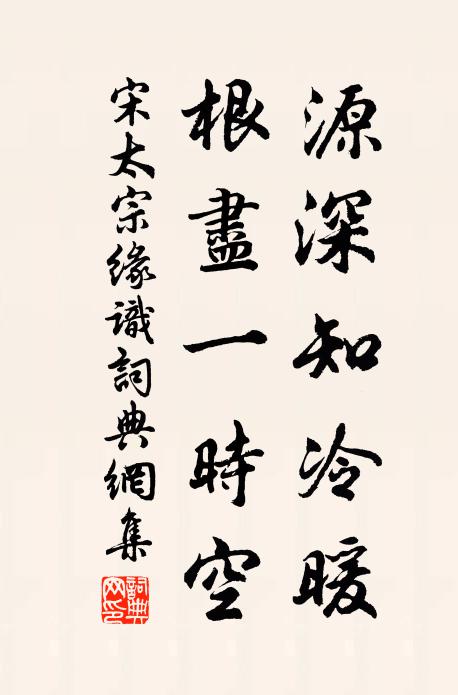 源深知冷暖
根盡一時空
宋太宗緣識詞典網集
詞典網印